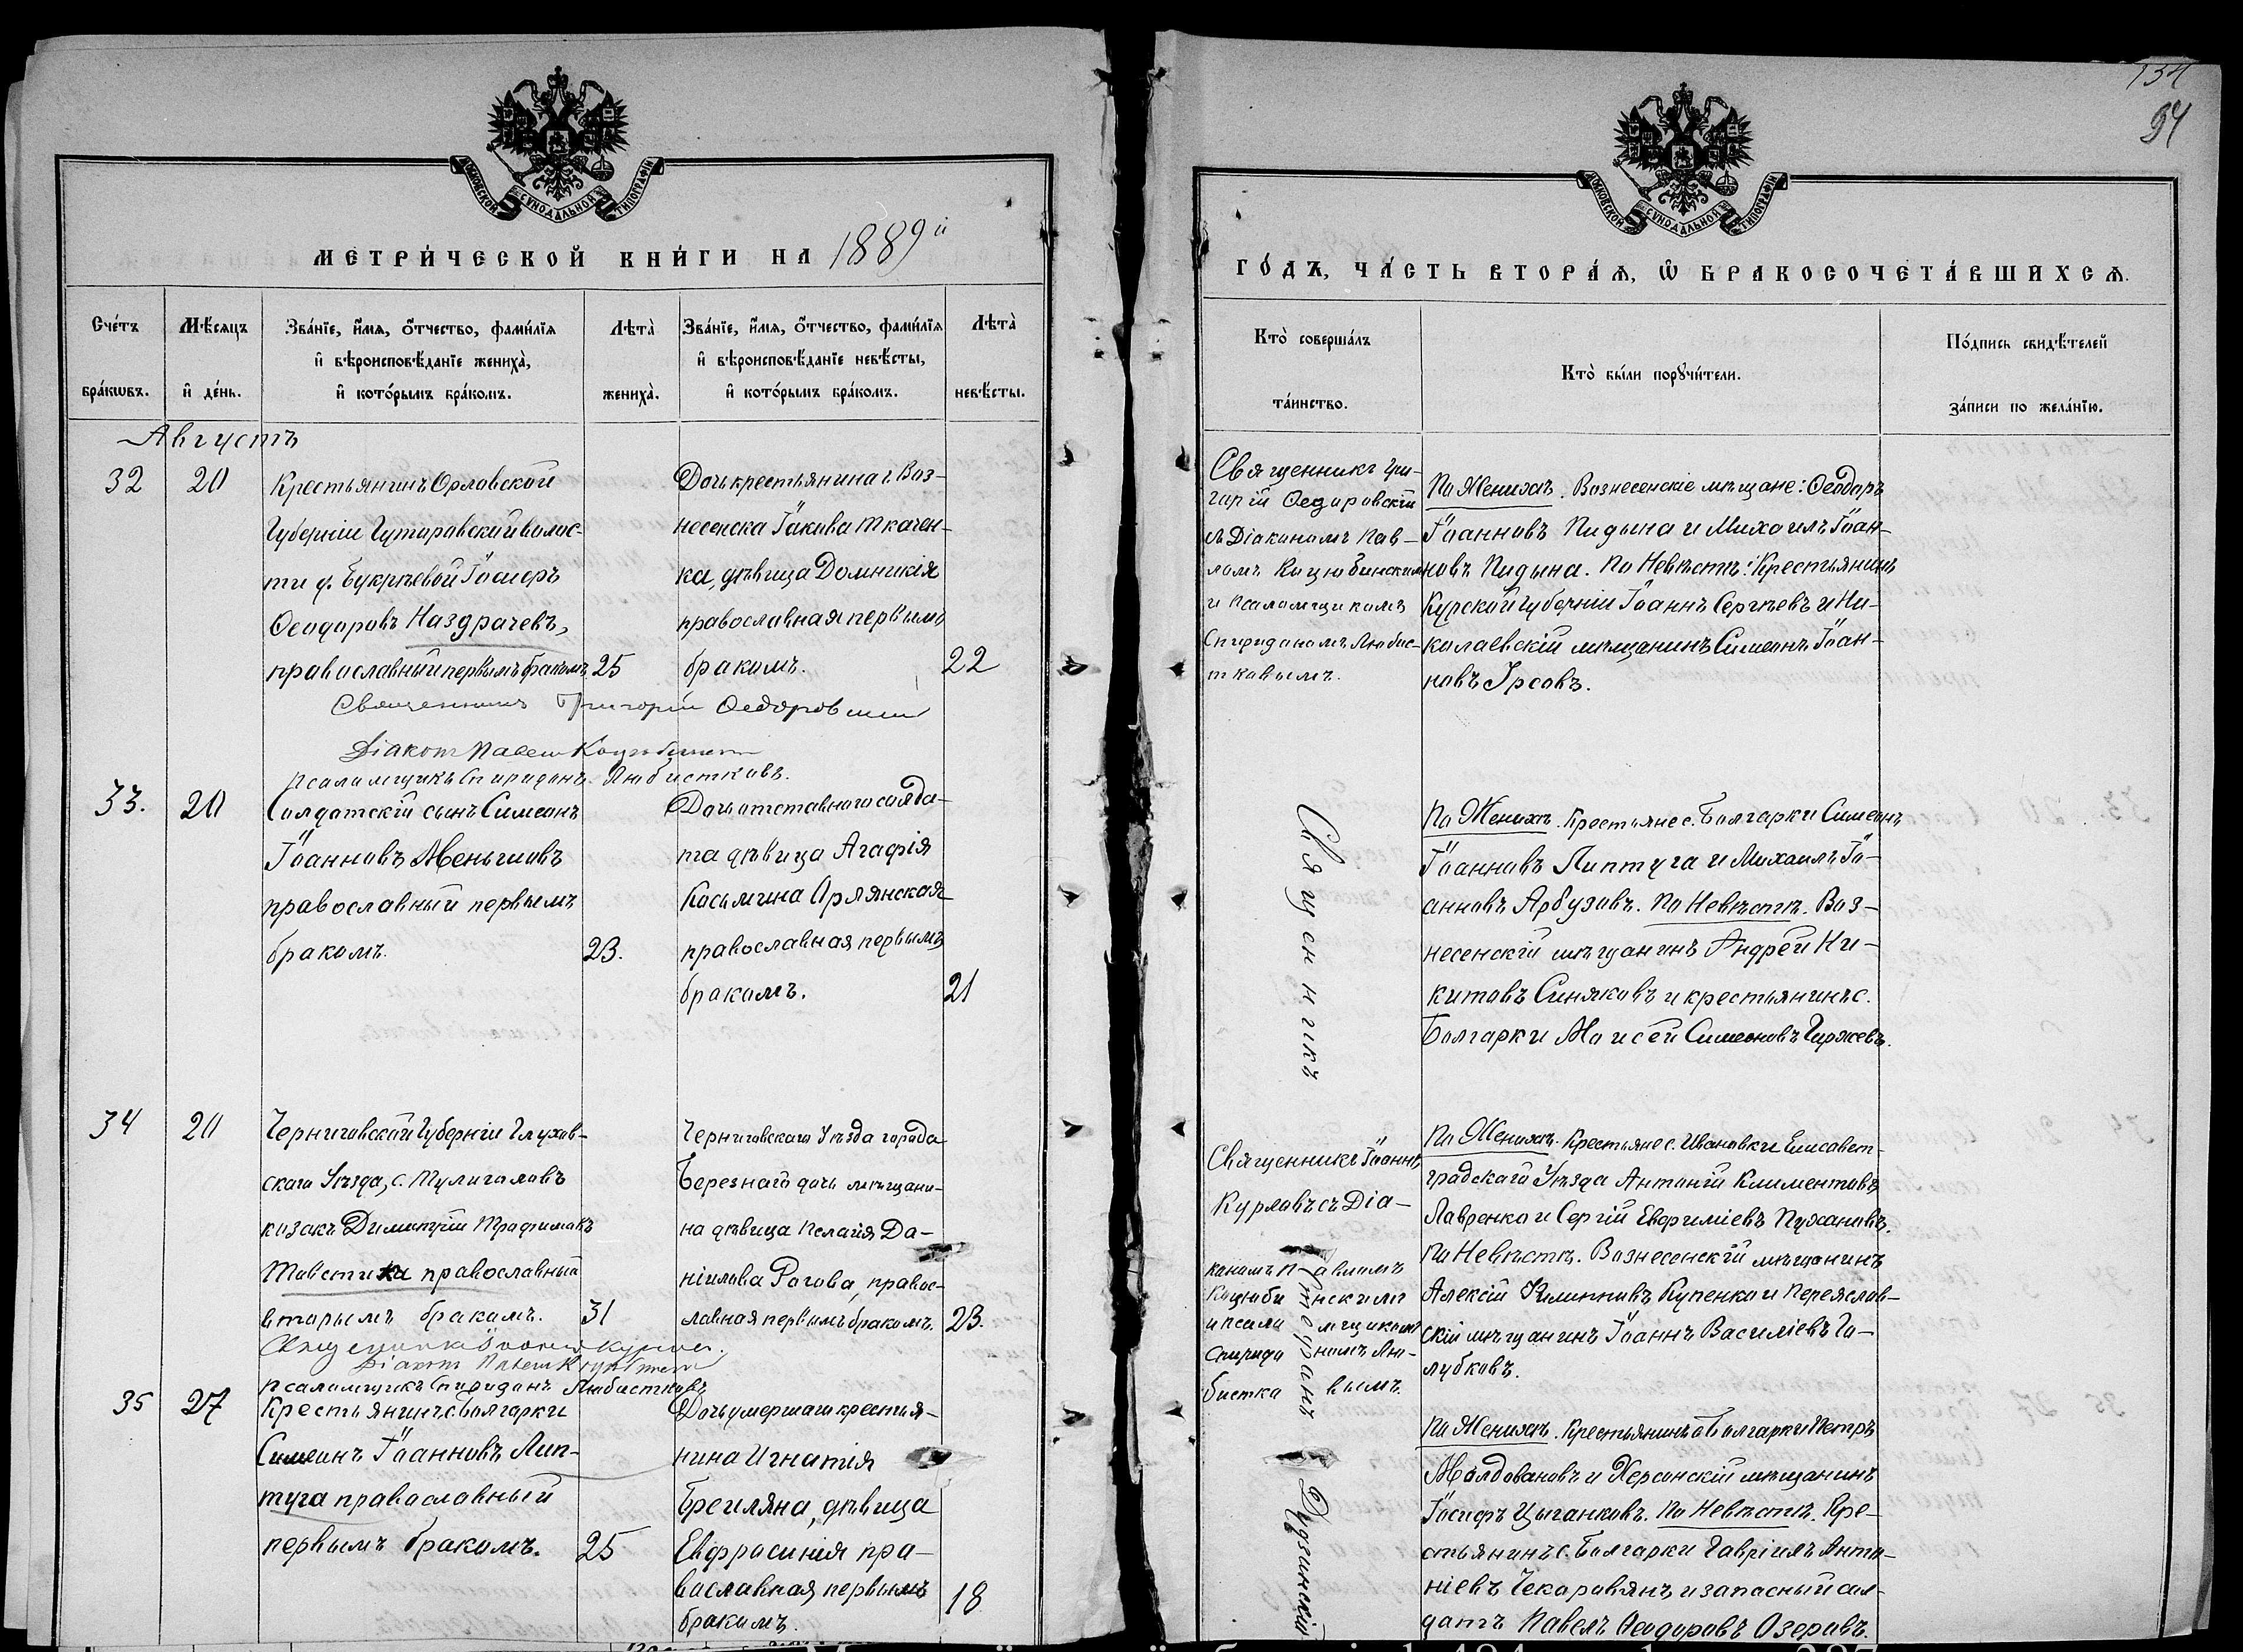 134
94
МОСКОВСКОЙ СѴНОДАЛЬНОЙ ТИПОГРАФІИ
МЕТРИ́ЧЕСКОЙ КНИ́ГИ НА 1889й
Сче́тъ бра́кѡвъ.
Мѣ́сяцъ и҆ де́нь.
Зва́нїе, и҆́мѧ, ѻ҆́тчество, фами́лїѧ
и҆ вѣроисповѣ́данїе жениха̀,
и҆ кото́рымъ бра́комъ.
Лѣта̀ жениха̀.
Зва́нїе, и҆́мѧ, ѻ҆́тчество, фами́лїѧ
и҆ вѣроисповѣ́данїе невѣ́сты,
и҆ кото́рымъ бра́комъ.
Лѣта̀ невѣ́сты.
Августъ
32
20
Крестьянинъ Орловской
Губерніи Гуторовской волос-
ти д. Букрѣевой Іосифъ
Ѳеодоровъ Наздрачевъ,
православный первымъ бракомъ
25
Дочь крестьянина г. Воз-
несенска Іакова Ткачен-
ка, дѣвица Домникія
православная первымъ
бракомъ.
22
Священникъ Григорій Ѳедоровскій
Діаконъ Павелъ Коцюбинскій
Псаломщикъ Спиридонъ Любистковъ.
33.
20
Солдатскій сынъ Симеонъ
Іоанновъ Меньшовъ
православный первымъ
бракомъ.
23.
Дочь отставного солда-
та дѣвица Агафія
Косьмина Орлянская
православная первымъ
бракомъ.
21
34
20
Черниговской Губерніи Глухов-
скаго Уѣзда, с. Тулиголовъ
козакъ Димитрій Трофимовъ
Товстика православный
вторымъ бракомъ.
31
Черниговскаго Уѣзда города
Березнаго дочь мѣщани-
на дѣвица Пелагія Да-
ніилова Рогова, правос-
лавная первымъ бракомъ.
23.
Священникъ Іоаннъ Курловъ.
Діаконъ Павелъ Коцюбинскій
Псаломщикъ Спиридонъ Любистковъ
35
27
Крестьянинъ с. Болгарки
Симеонъ Іоанновъ Лип-
туга православный
первымъ бракомъ.
25
Дочь умершаго крестья-
нина Игнатія
Брегляна, дѣвица
Евфрасинія пра-
вославная первымъ
бракомъ.
18
МОСКОВСКОЙ СѴНОДАЛЬНОЙ ТИПОГРАФІИ
ГО́ДЪ, ЧА́СТЬ ВТОРА́Ѧ, Ѡ҆ БРАКОСОЧЕТА́ВШИХСѦ.
Кто̀ соверша́лъ та́инство.
Кто̀ бы́ли порꙋчи́тели.
По́дпись свидѣ́телей за́писи по жела́нїю.
Священникъ Гри-
горій Ѳедоровскій
съ Діакономъ Пав-
ломъ Коцюбинскимъ
и Псаломщикомъ
Спиридономъ Любис-
тковымъ.
По Женихѣ. Вознесенскіе мѣщане: Ѳеодоръ
Іоанновъ Пидына и Михаилъ Іоан-
новъ Пидына. По Невѣстѣ: Крестьянинъ
Курской Губерніи Іоаннъ Сергѣевъ и Ни-
колаевскій мѣщанинъ Симеонъ Іоан-
новъ Урсовъ.
Священникъ
По Женихѣ. Крестьяне с. Болгарки Симеонъ
Іоанновъ Липтуга и Михаилъ Іо-
анновъ Арбузовъ. По Невѣстѣ. Воз-
несенскій мѣщанинъ Андрей Ни-
китовъ Синяковъ и крестьянинъ с.
Болгарки Моисей Симеоновъ Гиржевъ.
Священникъ Іоаннъ
Курловъ съ Діа-
кономъ Павломъ
Коцюбинскимъ
и псаломщикомъ
Спиридономъ Лю-
бистковымъ.
По Женихѣ. Крестьяне с. Ивановки Елисавет-
градскаго Уѣзда Антоній Климентовъ
Лавренко и Сергій Евфиміевъ Пужановъ.
По Невѣстѣ. Вознесенскій мѣщанинъ
Алексій Филипповъ Купенко и Переяслав-
скій мѣщанинъ Іоаннъ Василіевъ Го-
лубковъ.
Дудзинскій
По Женихѣ. Крестьянинъ с. Болгарки Петръ
Молдовановъ и Херсонскій мѣщанинъ
Іосифъ Цыганковъ. По Невѣстѣ. Кре-
стьянинъ с. Болгарки Гавріилъ Анто-
ніевъ Чекаровянъ и запасный сол-
датъ Павелъ Ѳеодоровъ Озеровъ.